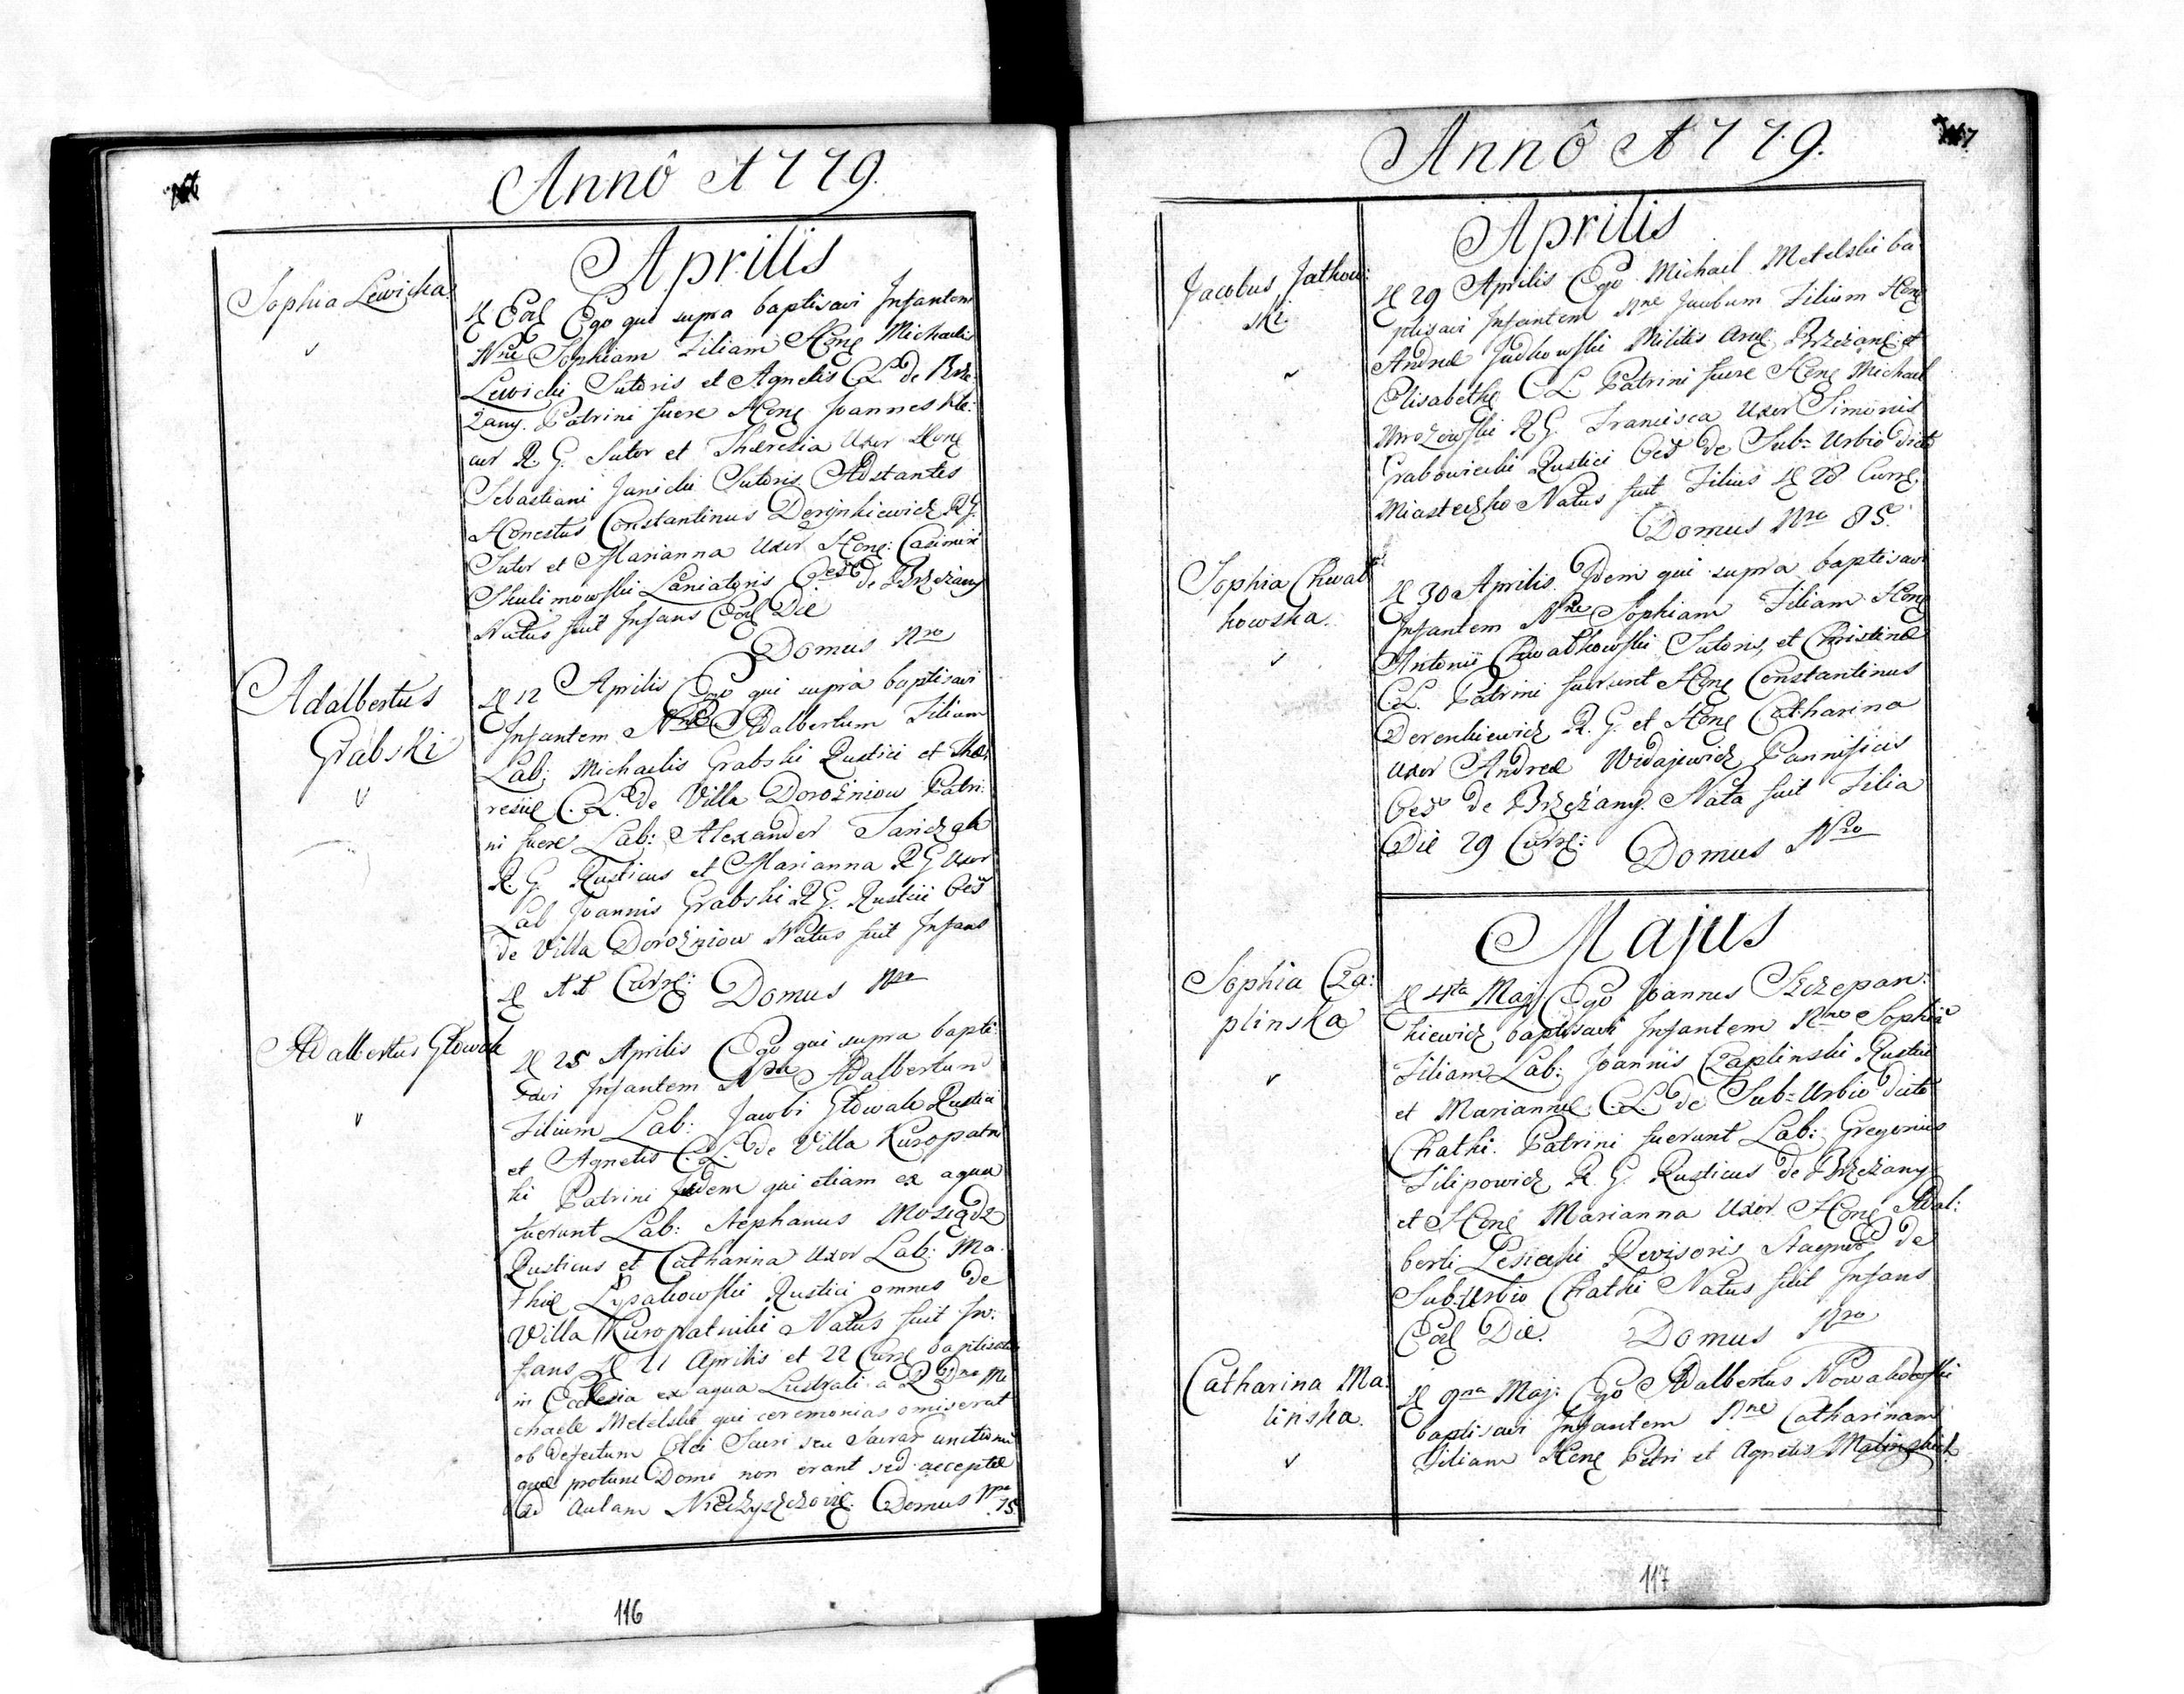 Annô 1779.
Aprilis
Sophia Lewicka
Eod Ego qui supra baptisavi Infantem
Nne Sophiam Filiam Hone Michaelis
Lewicki Sutoris et Agnetis C.L. de Brze-
zany. Patrini fuere Hone Joannes
R. G. Sutor et Theresia Uxor Hone
Sebastiani Janicki Sutoris Adstantes
Honestus Constantinus Derynkiewicz R.G.
Sutor et Marianna Uxor Hone: Casimiri
Skulimowski Laniatoris Oes de Brzezany
Natus fuit Infans Eod Die
Domus Nro
Adalbertus
Grabski
12 Aprilis Ego qui supra baptisavi
Infantem Nne Adalbertum Filium
Lab: Michaelis Grabski Rustici et The-
resiæ C.L. de Villa Dorożniow Patri:
ni fuere Lab: Alexander
R. G. Rusticus et Marianna R G Uxor
Lab Joannis Grabski R G. Rustici Oes
de Villa Dorożniow Natus fuit Infans
11 Curre: Domus Nro
Adalbertus Glowak
25 Aprilis Ego qui supra bapti:
savi Infantem Nne Adalbertum
Filium Lab: Jacobi Glowak Rustici
et Agnetis C.L. de Villa Kuropatni
ki Patrini Iidem qui etiam ex aqua
fuerunt Lab: Stephanus Mosiądz
Rusticus et Catharina Uxor Lab: Ma-
thiæ Lypakowski Rustici omnes de
Villa Kuropatniki Natus fuit In:
fans 21 Aprilis et 22 Curre baptisatus
in Ecclesia ex aqua Lustrali a R Dno Mi
chaele Metelski qui ceremonias omiserat
ob defectum Olei Sacri seu Sacrar unctionu
quæ Domi non erant sed acceptæ
ad Aulam Domus Nro 15.
116
Annô 1779.
117.
Aprilis
Jacobus Jatkow:
ski.
29 Aprilis Ego Michael Metelski ba
ptisavi Infantem Nne Jacobum Filium Hone
Andreæ Judkowski Militis Brzezane et
Elisabethæ C L. Patrini fuere Hone Michael
Mrozowski R G. Francisca Uxor Simonis
Grabowiecki Rustici Oes de Sub-Urbio dicto
Miasteczko Natus fuit Filius 28 Curre
Domus Nro 85.
Sophia Chwat
kowska.
30 Aprilis Idem qui supra baptisavi
Infantem Nne Sophiam Filiam Hone
Antonii Chwatkowski Sutoris, et Christinæ
C.L. Patrini fuerunt Hone Constantinus
Derenkiewicz R. G. et Hone Catharina
uxor Andreæ Widajewicz Pannificis
Oes de Brzezany. Nata fuit Filia
Die 29 Curre: Domus Nro
Majus
Sophia Cza:
plinska
4ta Maj Ego Joannes Szczepan:
kiewicz baptisavi Infantem Nne Sophia
Filiam Lab: Joannis Czaplinski Rustici
et Mariannæ C.L. de Sub-Urbio dicto
Chatki. Patrini fuerunt Lab: Gregorius
Filipowicz R. G. Rusticus de Brzezany
et Hone Marianna Uxor Hone Adal:
berti Lesiecki Revisoris de
Sub-Urbio Chatki Natus fuit Infans
Eod Die. Domus Nro
Catharina Ma
linska.
9na Maj: Ego Adalbertus Nowakowski
baptisavi Infantem Nne Catharinam
Filiam Hone Petri et Agnetis
117